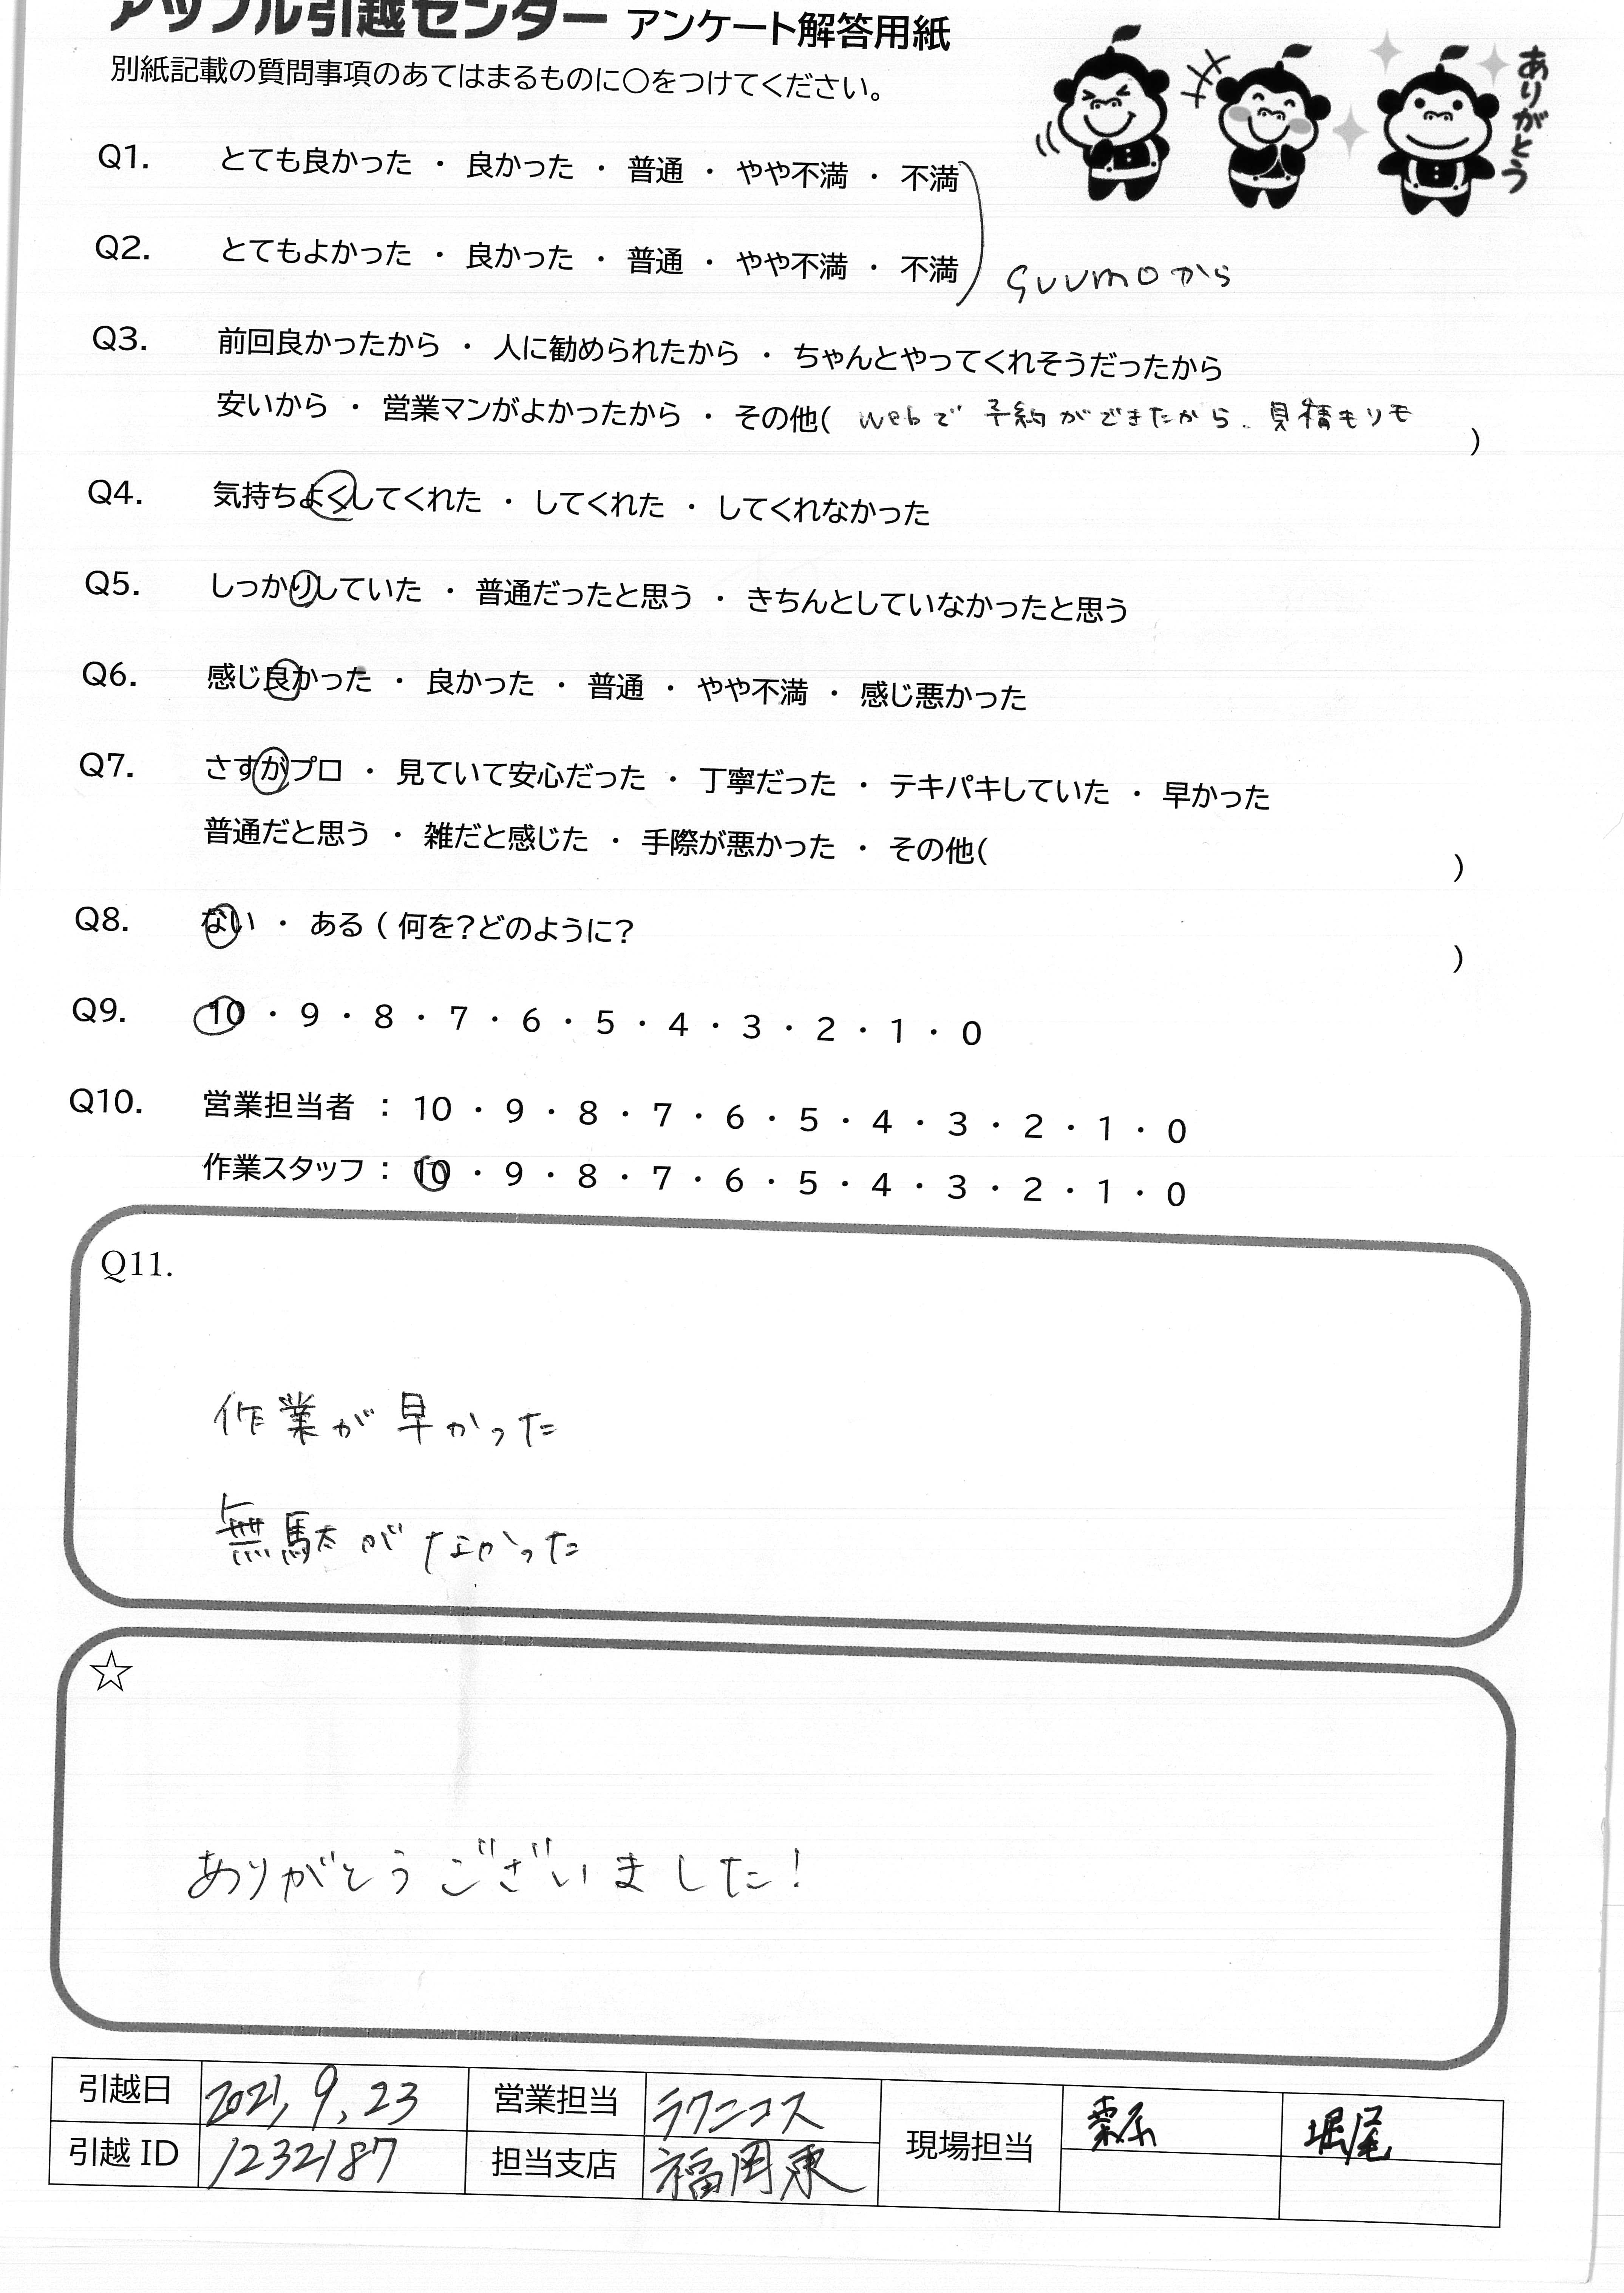 アップル引越センター アンケート解答用紙
別紙記載の質問事項のあてはまるものに〇をつけてください。
ありがとう
Q1. とても良かった ・ 良かった ・ 普通 ・ やや不満 ・ 不満
Q2. とてもよかった ・ 良かった ・ 普通 ・ やや不満 ・ 不満
suumoから
Q3. 前回良かったから ・ 人に勧められたから ・ ちゃんとやってくれそうだったから
安いから ・ 営業マンがよかったから ・ その他( webで予約ができたから、見積もりモ )
Q4. 気持ちよくしてくれた ・ してくれた ・ してくれなかった
Q5. しっかりしていた ・ 普通だったと思う ・ きちんとしていなかったと思う
Q6. 感じ良かった ・ 良かった ・ 普通 ・ やや不満 ・ 感じ悪かった
Q7. さすがプロ ・ 見ていて安心だった ・ 丁寧だった ・ テキパキしていた ・ 早かった
普通だと思う ・ 雑だと感じた ・ 手際が悪かった ・ その他( )
Q8. ない ・ ある ( 何を?どのように? )
Q9. 10 ・ 9 ・ 8 ・ 7 ・ 6 ・ 5 ・ 4 ・ 3 ・ 2 ・ 1 ・ 0
Q10. 営業担当者 : 10 ・ 9 ・ 8 ・ 7 ・ 6 ・ 5 ・ 4 ・ 3 ・ 2 ・ 1 ・ 0
作業スタッフ : 10 ・ 9 ・ 8 ・ 7 ・ 6 ・ 5 ・ 4 ・ 3 ・ 2 ・ 1 ・ 0
Q11.
作業が早かった
無駄がなかった
☆
ありがとうございました!
引越日 2021,9,23 営業担当 ラクニコス 現場担当 堀尾
引越ID 1232187 担当支店 福岡東